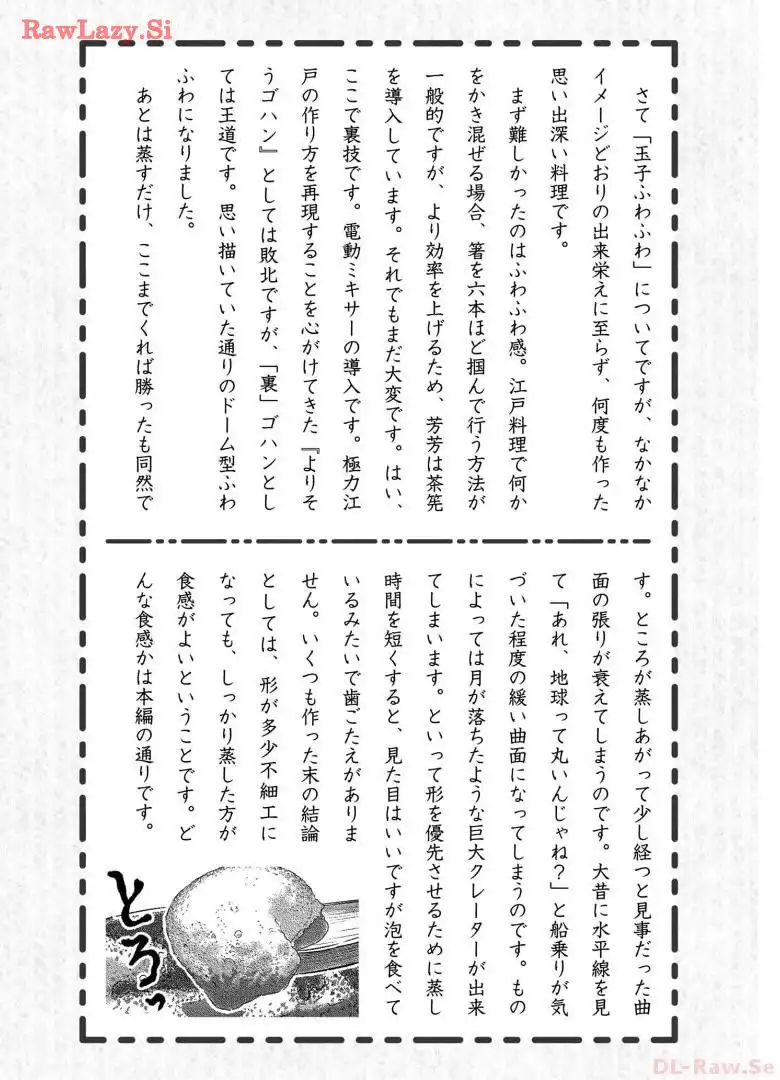 RawLazy.Si
さて「玉子ふわふわ」についてですが、なかなか
イメージどおりの出来栄えに至らず、何度も作った
思い出深い料理です。
まず難しかったのはふわふわ感。江戸料理で何か
をかき混ぜる場合、箸を六本ほど掴んで行う方法が
一般的ですが、より効率を上げるため、芳芳は茶筅
を導入しています。それでもまだ大変です。はい、
ここで裏技です。電動ミキサーの導入です。極力江
戸の作り方を再現することを心がけてきた『よりそ
うゴハン』としては敗北ですが、「裏」ゴハンとし
ては王道です。思い描いていた通りのドーム型ふわ
ふわになりました。
あとは蒸すだけ、ここまでくれば勝ったも同然で
す。ところが蒸しあがって少し経つと見事だった曲
面の張りが衰えてしまうのです。大昔に水平線を見
て「あれ、地球って丸いんじゃね？」と船乗りが気
づいた程度の緩い曲面になってしまうのです。もの
によっては月が落ちたような巨大クレーターが出来
てしまいます。といって形を優先させるために蒸し
時間を短くすると、見た目はいいですが泡を食べて
いるみたいで歯ごたえがありま
せん。いくつも作った末の結論
としては、形が多少不細工に
なっても、しっかり蒸した方が
食感がよいということです。ど
んな食感かは本編の通りです。
とろっ
DL-Raw.Se